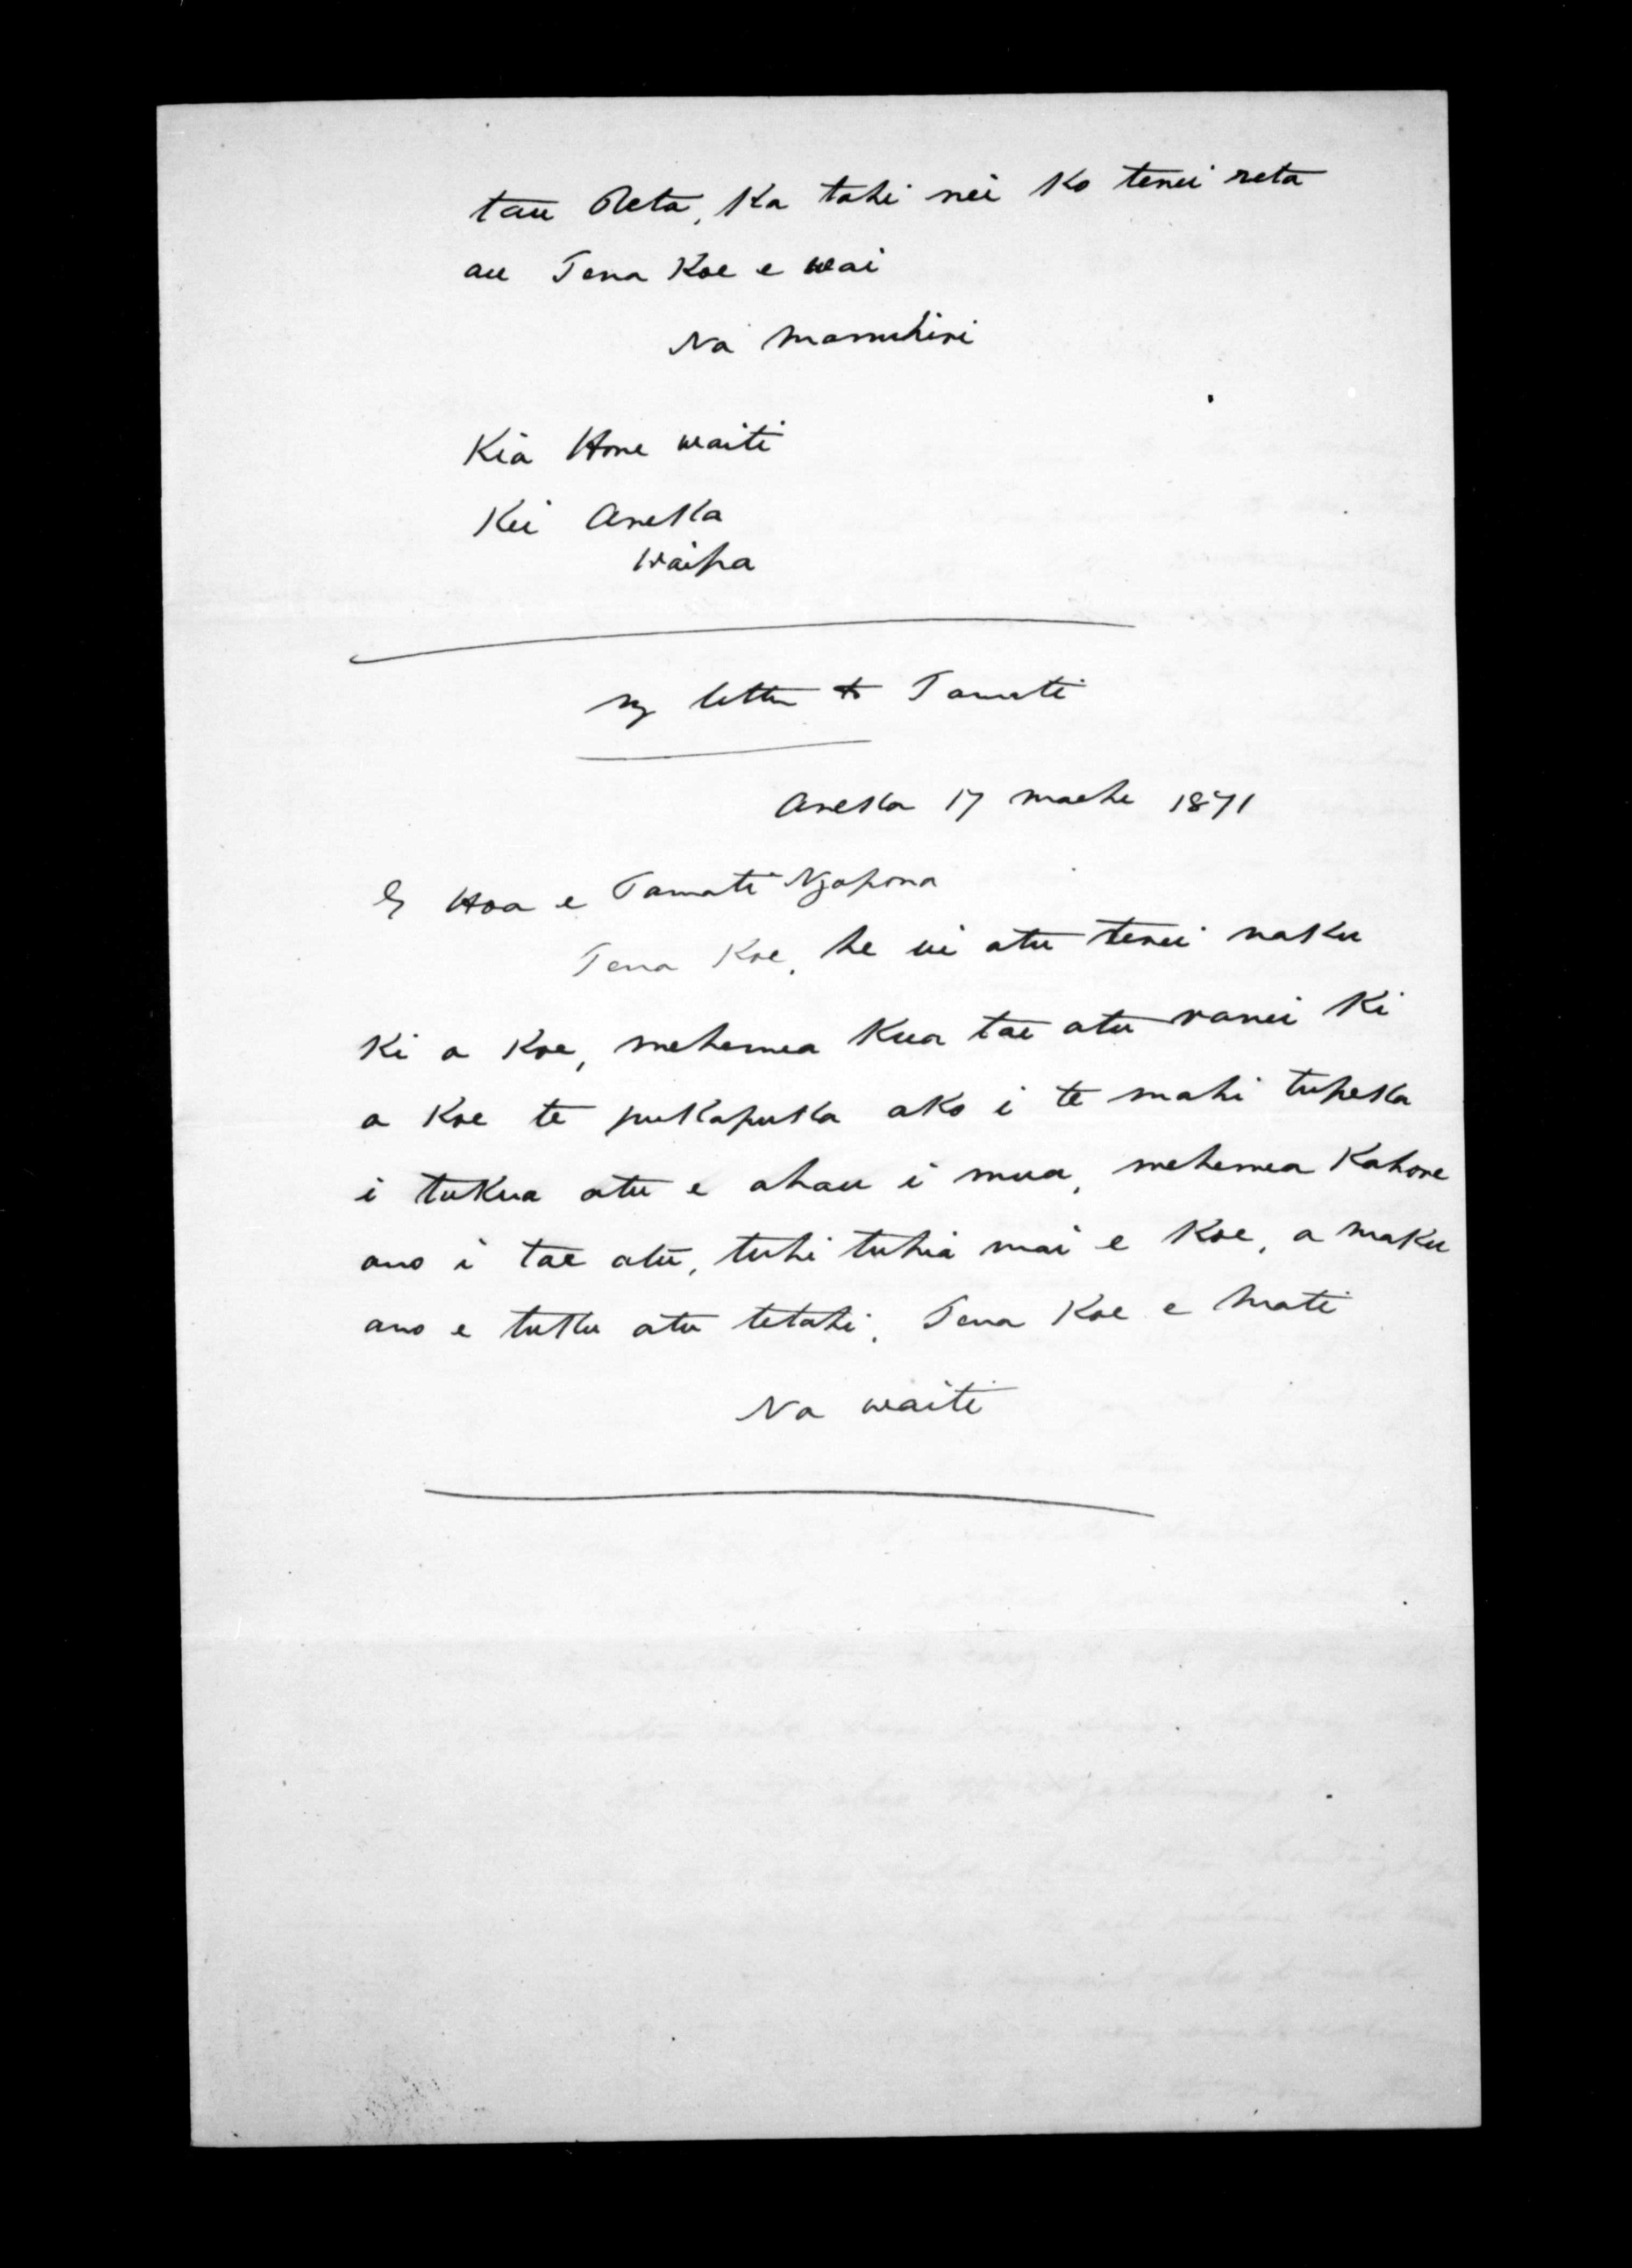 tau Reta, Ka tahi nei Ko tenei reta
au Tena Koe e wai
Na Manuhiri
Kia Hone waiti
Kei Aneka
Waipa
My letter to Tamati
Aneka 17 maehe 1871
E Hoa e Tamati Ngapora
Tena Koe, he ui atu tenei naku
Ki a Koe, mehemea Kua tae atu ranei Ki
a Koe te pukapuka ako i te mahi tupeka
i tukua atu e ahau i mua, mehemea Kahore
ano i tae atu, tuhi tuhia mai e Koe, a maku
ano e tuku atu tetahi. Tena Koe e Mati
Na waiti